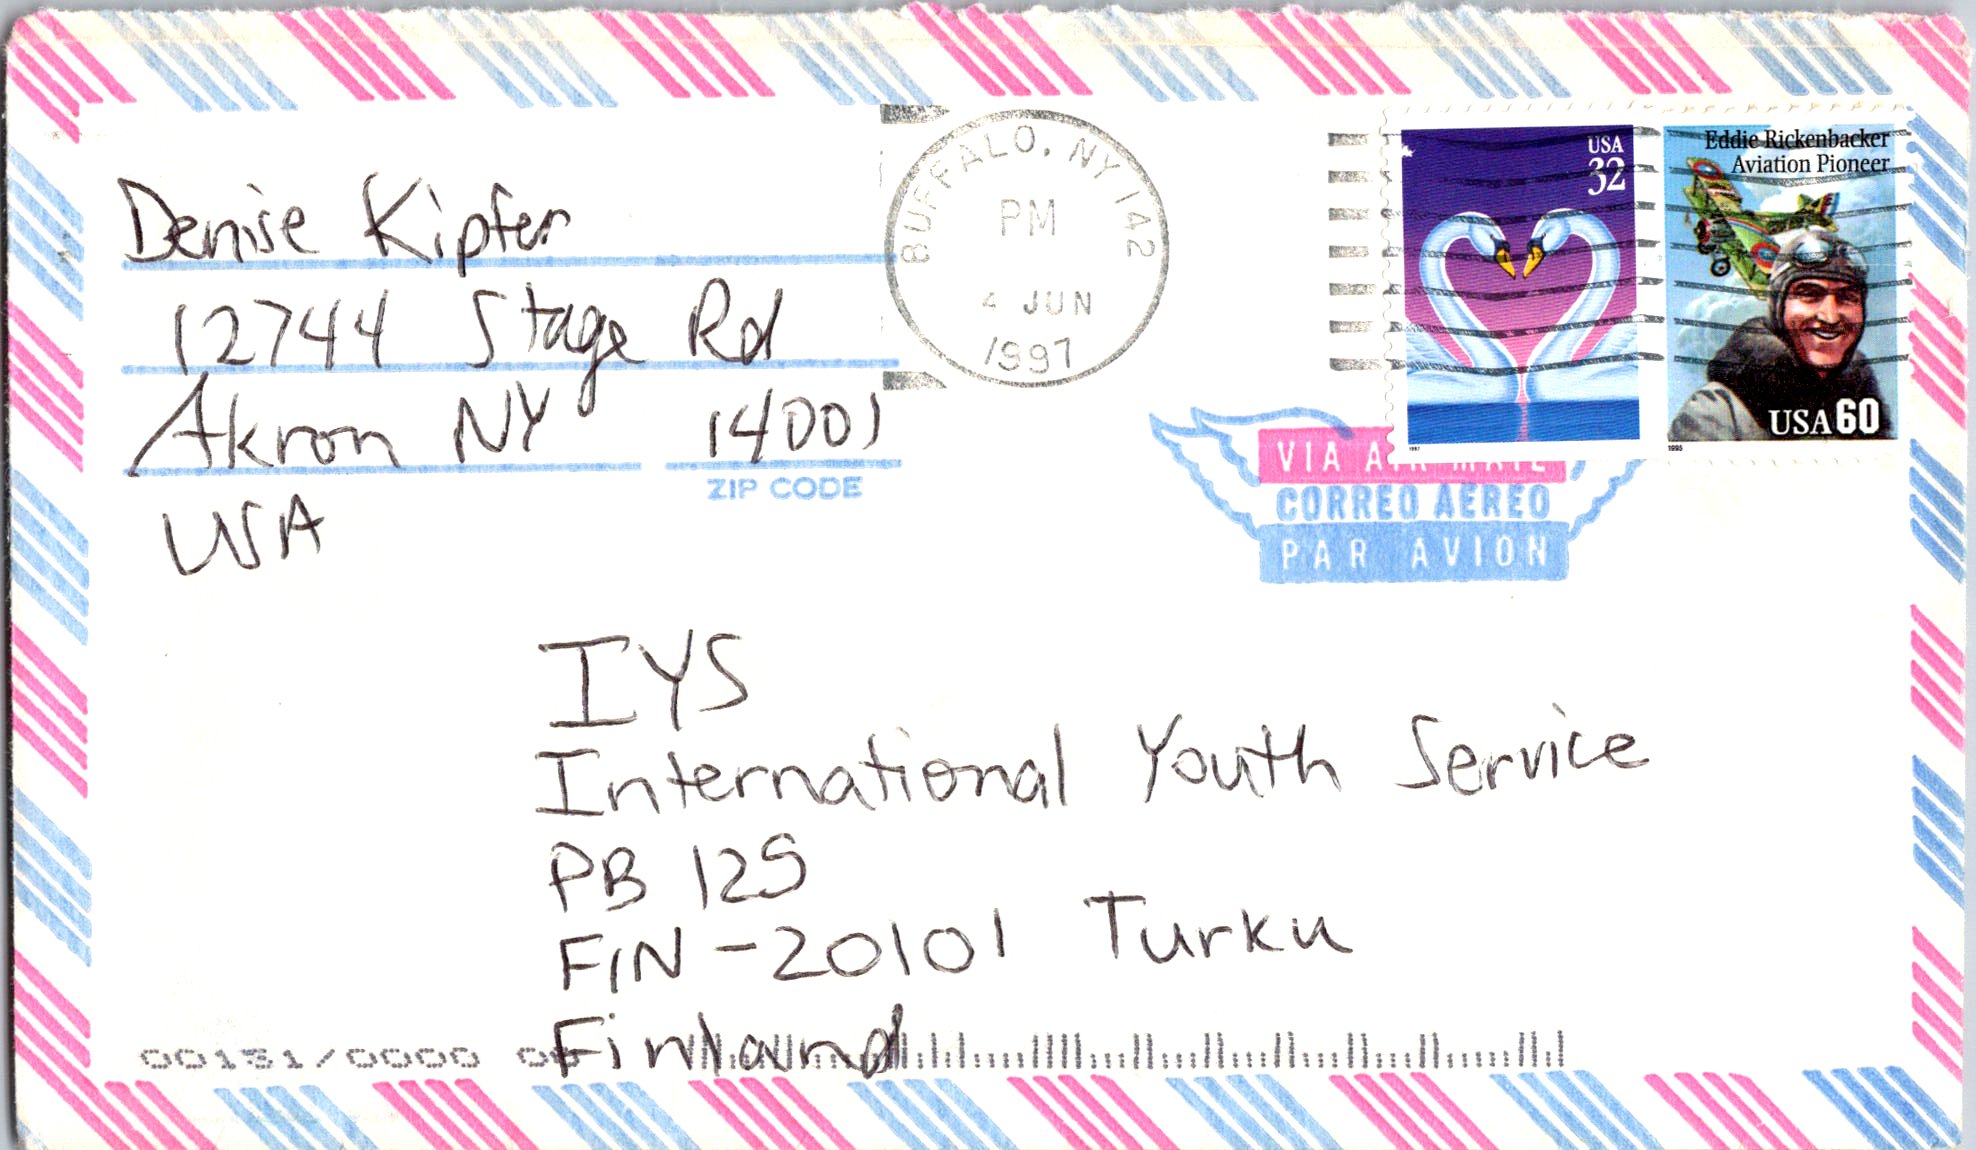 Denise Kipfer
12744 Stage Rd
Akron NY 14001
ZIP CODE
USA
BUFFALO, NY 142
PM
4 JUN
1997
USA
32
1997
Eddie Rickenbacker
Aviation Pioneer
USA 60
1995
VIA AIR MAIL
CORREO AEREO
PAR AVION
IYS
International Youth Service
PB 125
FIN-20101 Turku
Finland
00131/0000